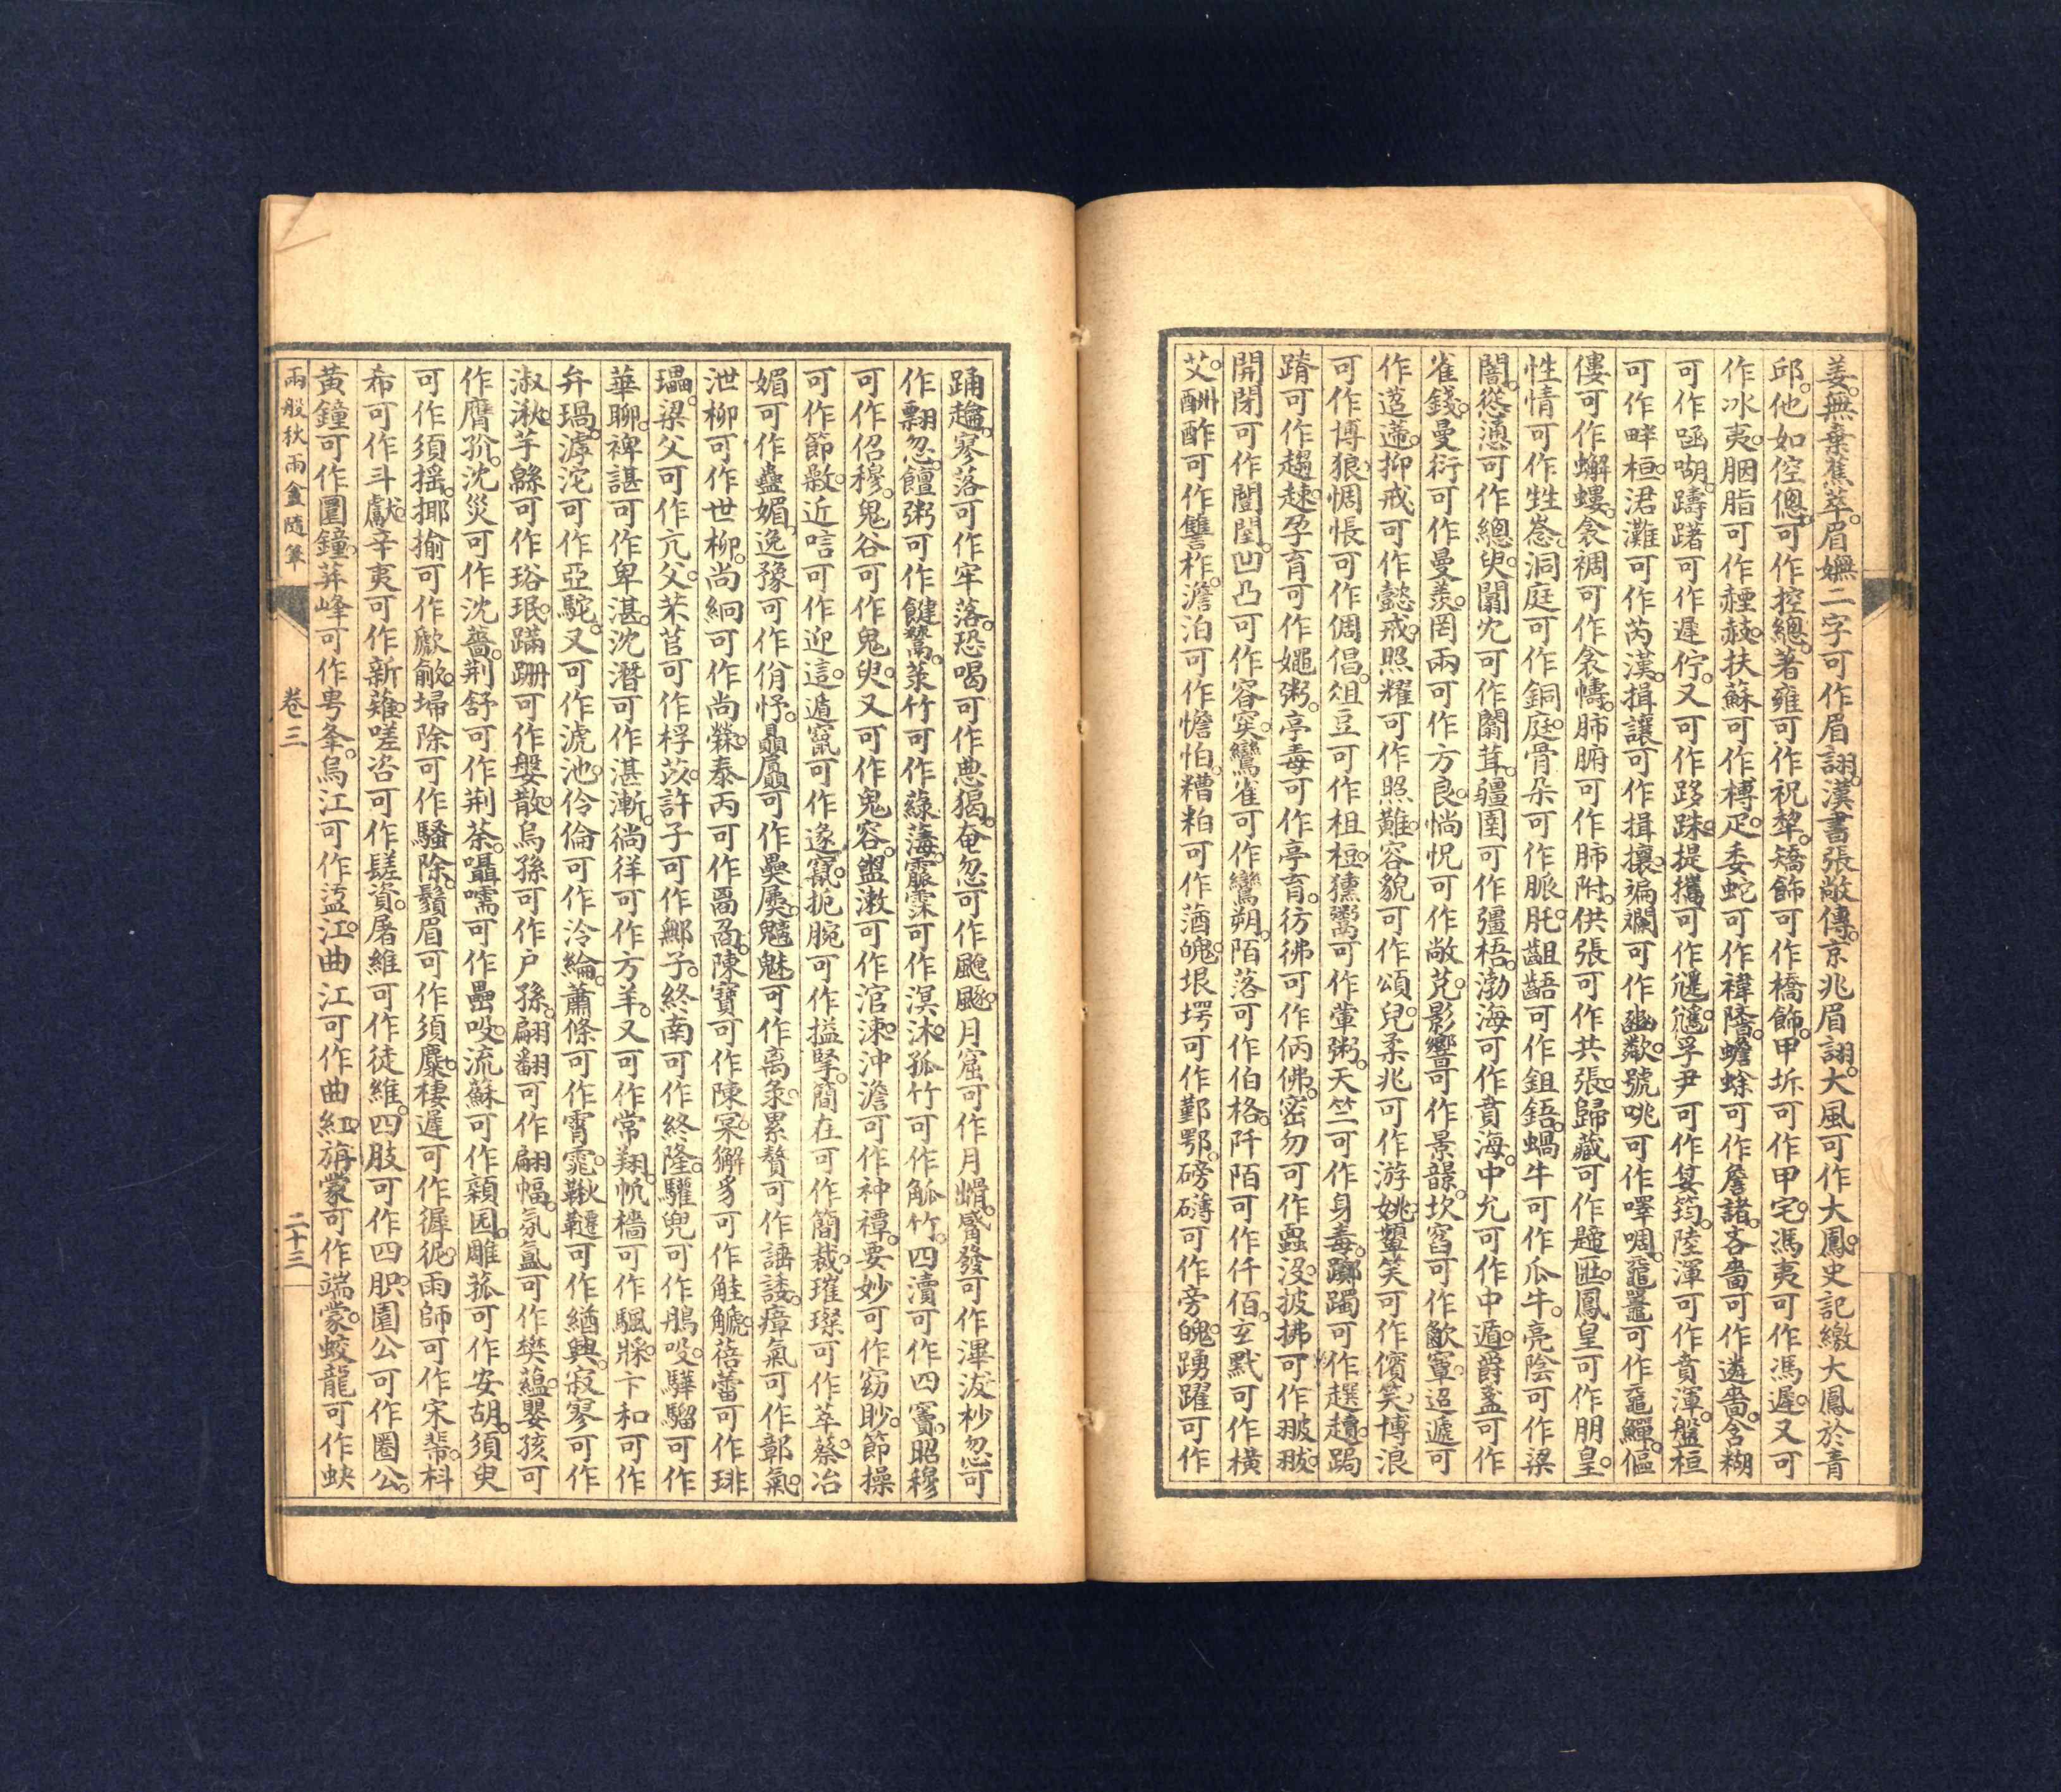 姜無棄蕉萃眉嫵二字可作眉詡漢書張敞傳京兆眉詡大風可作大鳳史記繳大鳳於青
邱他如倥傯可作控總著雍可作祝犂矯飾可作橋飾甲坼可作甲宅馮夷可作馮遲又可
作冰夷胭脂可作䞓𧹞扶蘇可作榑疋委蛇可作禕隋蟾蜍可作詹諸吝嗇可作遴嗇含糊
可作𠴊嗍躊躇可作遲佇又可作跢跦提攜可作孚尹可作筠陸渾可作賁渾盤桓
可作畔桓涒灘可作芮漢揖讓可作揖攘斒斕可作豳號咷可作㘁啁黿鼉可作黿鱓傴
僂可作蠏螻衾裯可作衾幬肺腑可作肺附供張可作共張歸藏可作鳳皇可作朋皇
性情可作洞庭可作銅庭骨朵可作齟齬可作鉏鋙蝸牛可作瓜牛亮陰可作梁
闇慫慂可作總臾闒冗可作闒茸疆圉可作彊梧渤海可作賁海中允可作中遁爵盞可作
雀錢曼衍可作曼羨罔兩可作方良惝怳可作敞𠒋影響可作景韻坎窞可作歁窞迢遞可
作迢遰抑戒可作懿戒照耀可作照難容貌可作頌兒柔兆可作游姚顰笑可作儐笑博浪
可作博狼惆悵可作倜倡俎豆可作柤梪獯鬻可作葷粥天竺可作身毒躑躅可作𨅓
躋可作趨趚孕育可作孀粥亭毒可作亭育彷彿可作俩佛密勿可作蠠沒披拂可作翍
開閉可作闓凹凸可作容突鸞雀可作鸞朔陌落可作伯格阡陌可作仟佰玄默可作橫
艾酬酢可作讐柞澹泊可作憺怕糟粕可作蕕魄垠堮可作鄞鄂磅礴可作旁魄踴躍可作
踊䠛寥落可作牢落恐喝可作恿猲奄忽可作颮颷月窟可作月𧍪觱發可作滭泼杪忽可
作翲忽饘粥可作䭈鬻菉竹可作蒤薄霢霂可作溟沐孤竹可作觚竹四瀆可作四竇昭穆
可作佋穆鬼谷可作鬼臾又可作鬼容盥漱可作涫涑沖澹可作神禫要妙可作窈眇節操
可作節㪚近唁可作迎這遁竄可作遂竄扼腕可作搤掔簡在可作簡裁璀璨可作萃蔡冶
媚可作蠱媚逸豫可作佾忬贔屭可作奰屓魑魅可作离彖累贅可作諈諉瘴氣可作鄣氣
泄柳可作世柳尚絅可作尚褧泰丙可作䓠陳寶可作陳宲獬豸可作觟䚦蓓蕾可作琲
瓃梁父可作亢父芣苢可作桴苡許子可作鄦子終南可作終隆驩兜可作鴅吺驊騮可作
華聊裨諶可作卑湛沈潛可作湛漸徜徉可作方羊又可作常翔帆檣可作䬝牂卞和可作
弁瑥滹沱可作亞駝又可作滮池伶倫可作泠綸蕭條可作霄霓鞦韆可作緧輿寂寥可作
淑湫芋緜可作珨珉蹣跚可作槃散烏孫可作户孫翩翻可作翩幅氛氳可作樊蘊嬰孩可
作膺孙沈災可作沈菑荆舒可作荆荼囁嚅可作咠吺流蘇可作䫉囩雕菰可作安胡須臾
可作須摇揶揄可作歋歈埽除可作騷除鬚眉可作須麋棲遲可作徲徥雨師可作宋芾枓
希可作斗獻辛夷可作新薙嗟咨可作髊資屠維可作徒維四肢可作四职園公可作圈公
黃鐘可作圓鐘莽峰可作甹夆烏江可作盓江曲江可作曲紅旃蒙可作端蒙蛟龍可作蚗
兩般秋雨盦隨筆
卷三
二十三